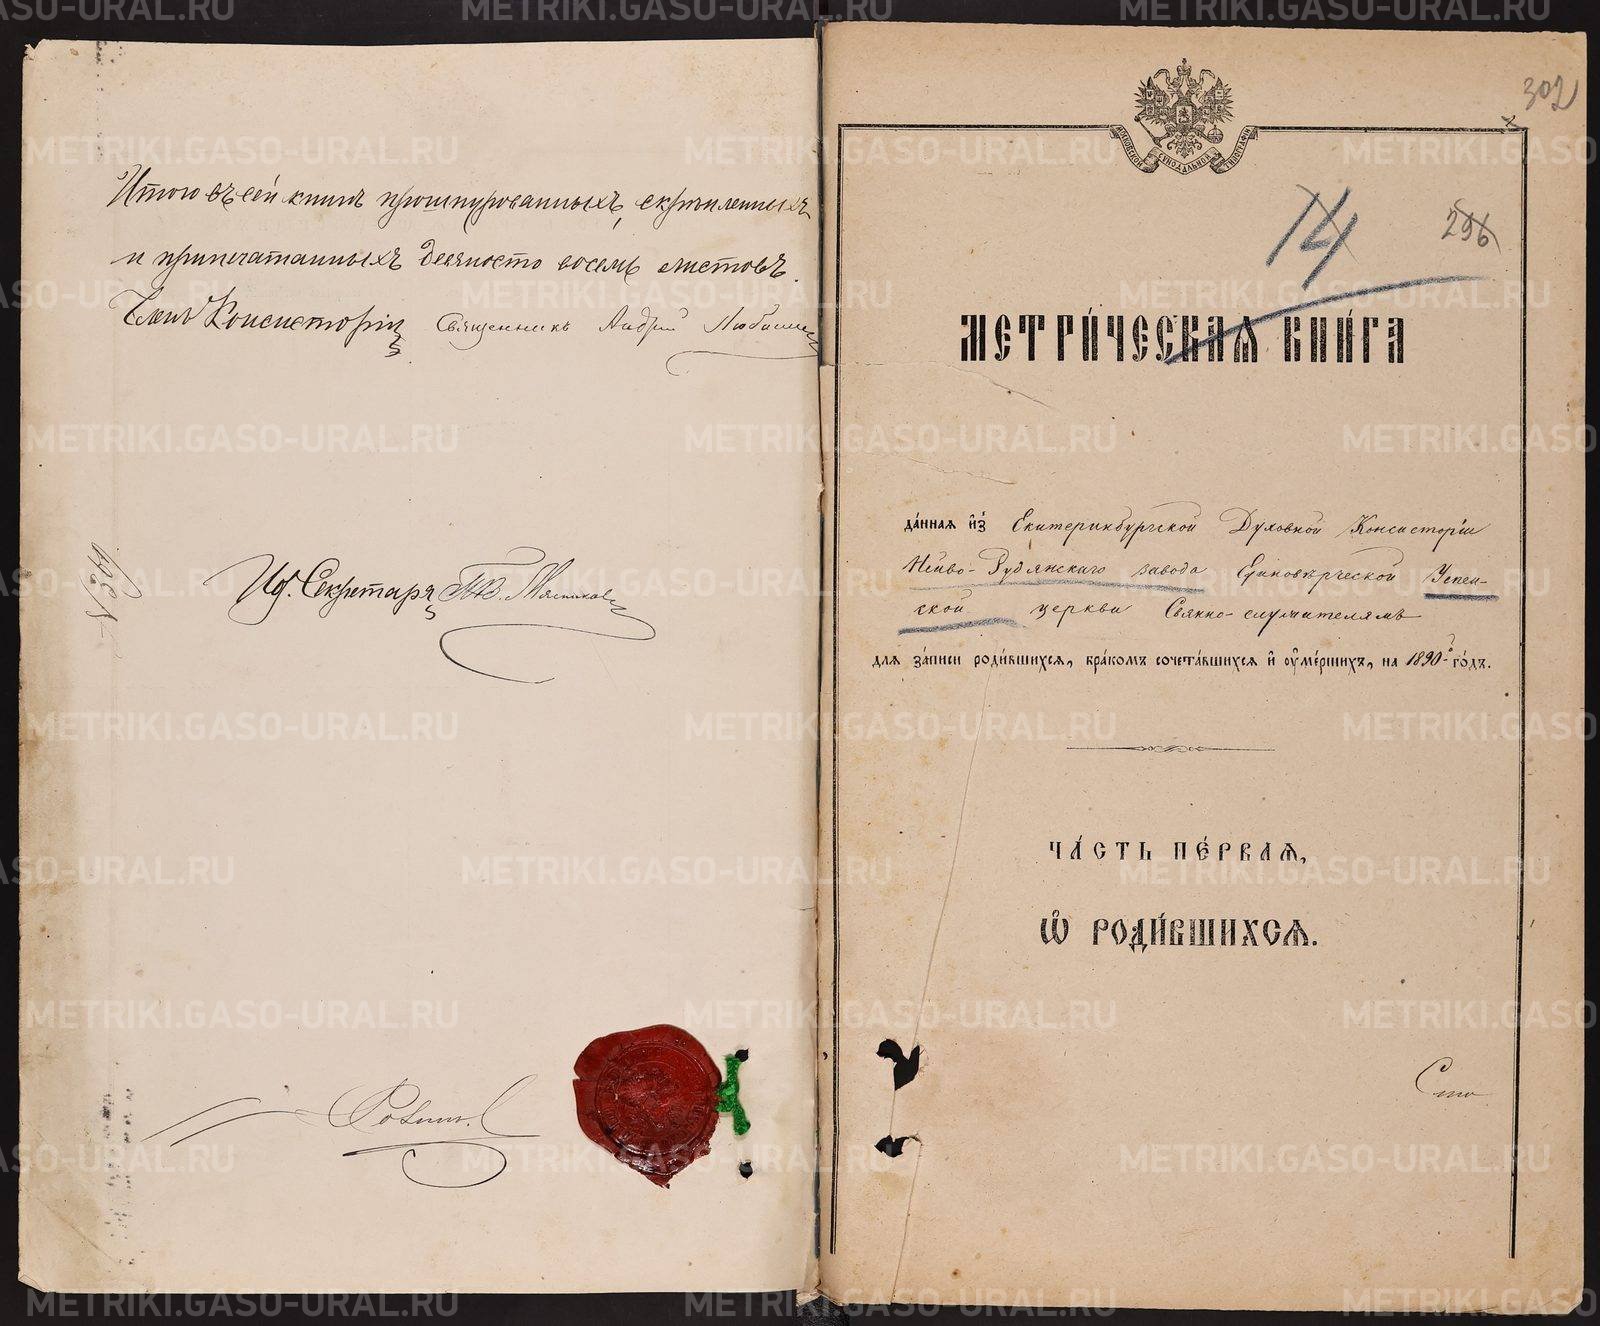 Итого въ сей книгѣ прошнурованныхъ, скрѣпленныхъ
и припечатанныхъ девяносто восемь листовъ.
Членъ Консисторіи Священникъ Андрей
Ид. Секретаря
302
МОСКОВСКОЙ СѴНОДАЛЬНОЙ ТИПОГРАФІИ
14
296
МЕТРИ́ЧЕСКАЯ КНИ́ГА
да́нная и҆з̾ Екатеринбургской Духовной Консисторіи
Нейво-Рудянскаго завода Единовѣрческой Успен-
ской церкви Священно-служителямъ
для за́писи роди́вшихся, бра́комъ сочета́вшихся и҆ ᲂу҆ме́ршихъ, на 1890й го́дъ.
ЧА́СТЬ ПЕ́РВАЯ,
Ѽ РОДИ́ВШИХСЯ.
Сто
METRIKI.GASO-URAL.RU